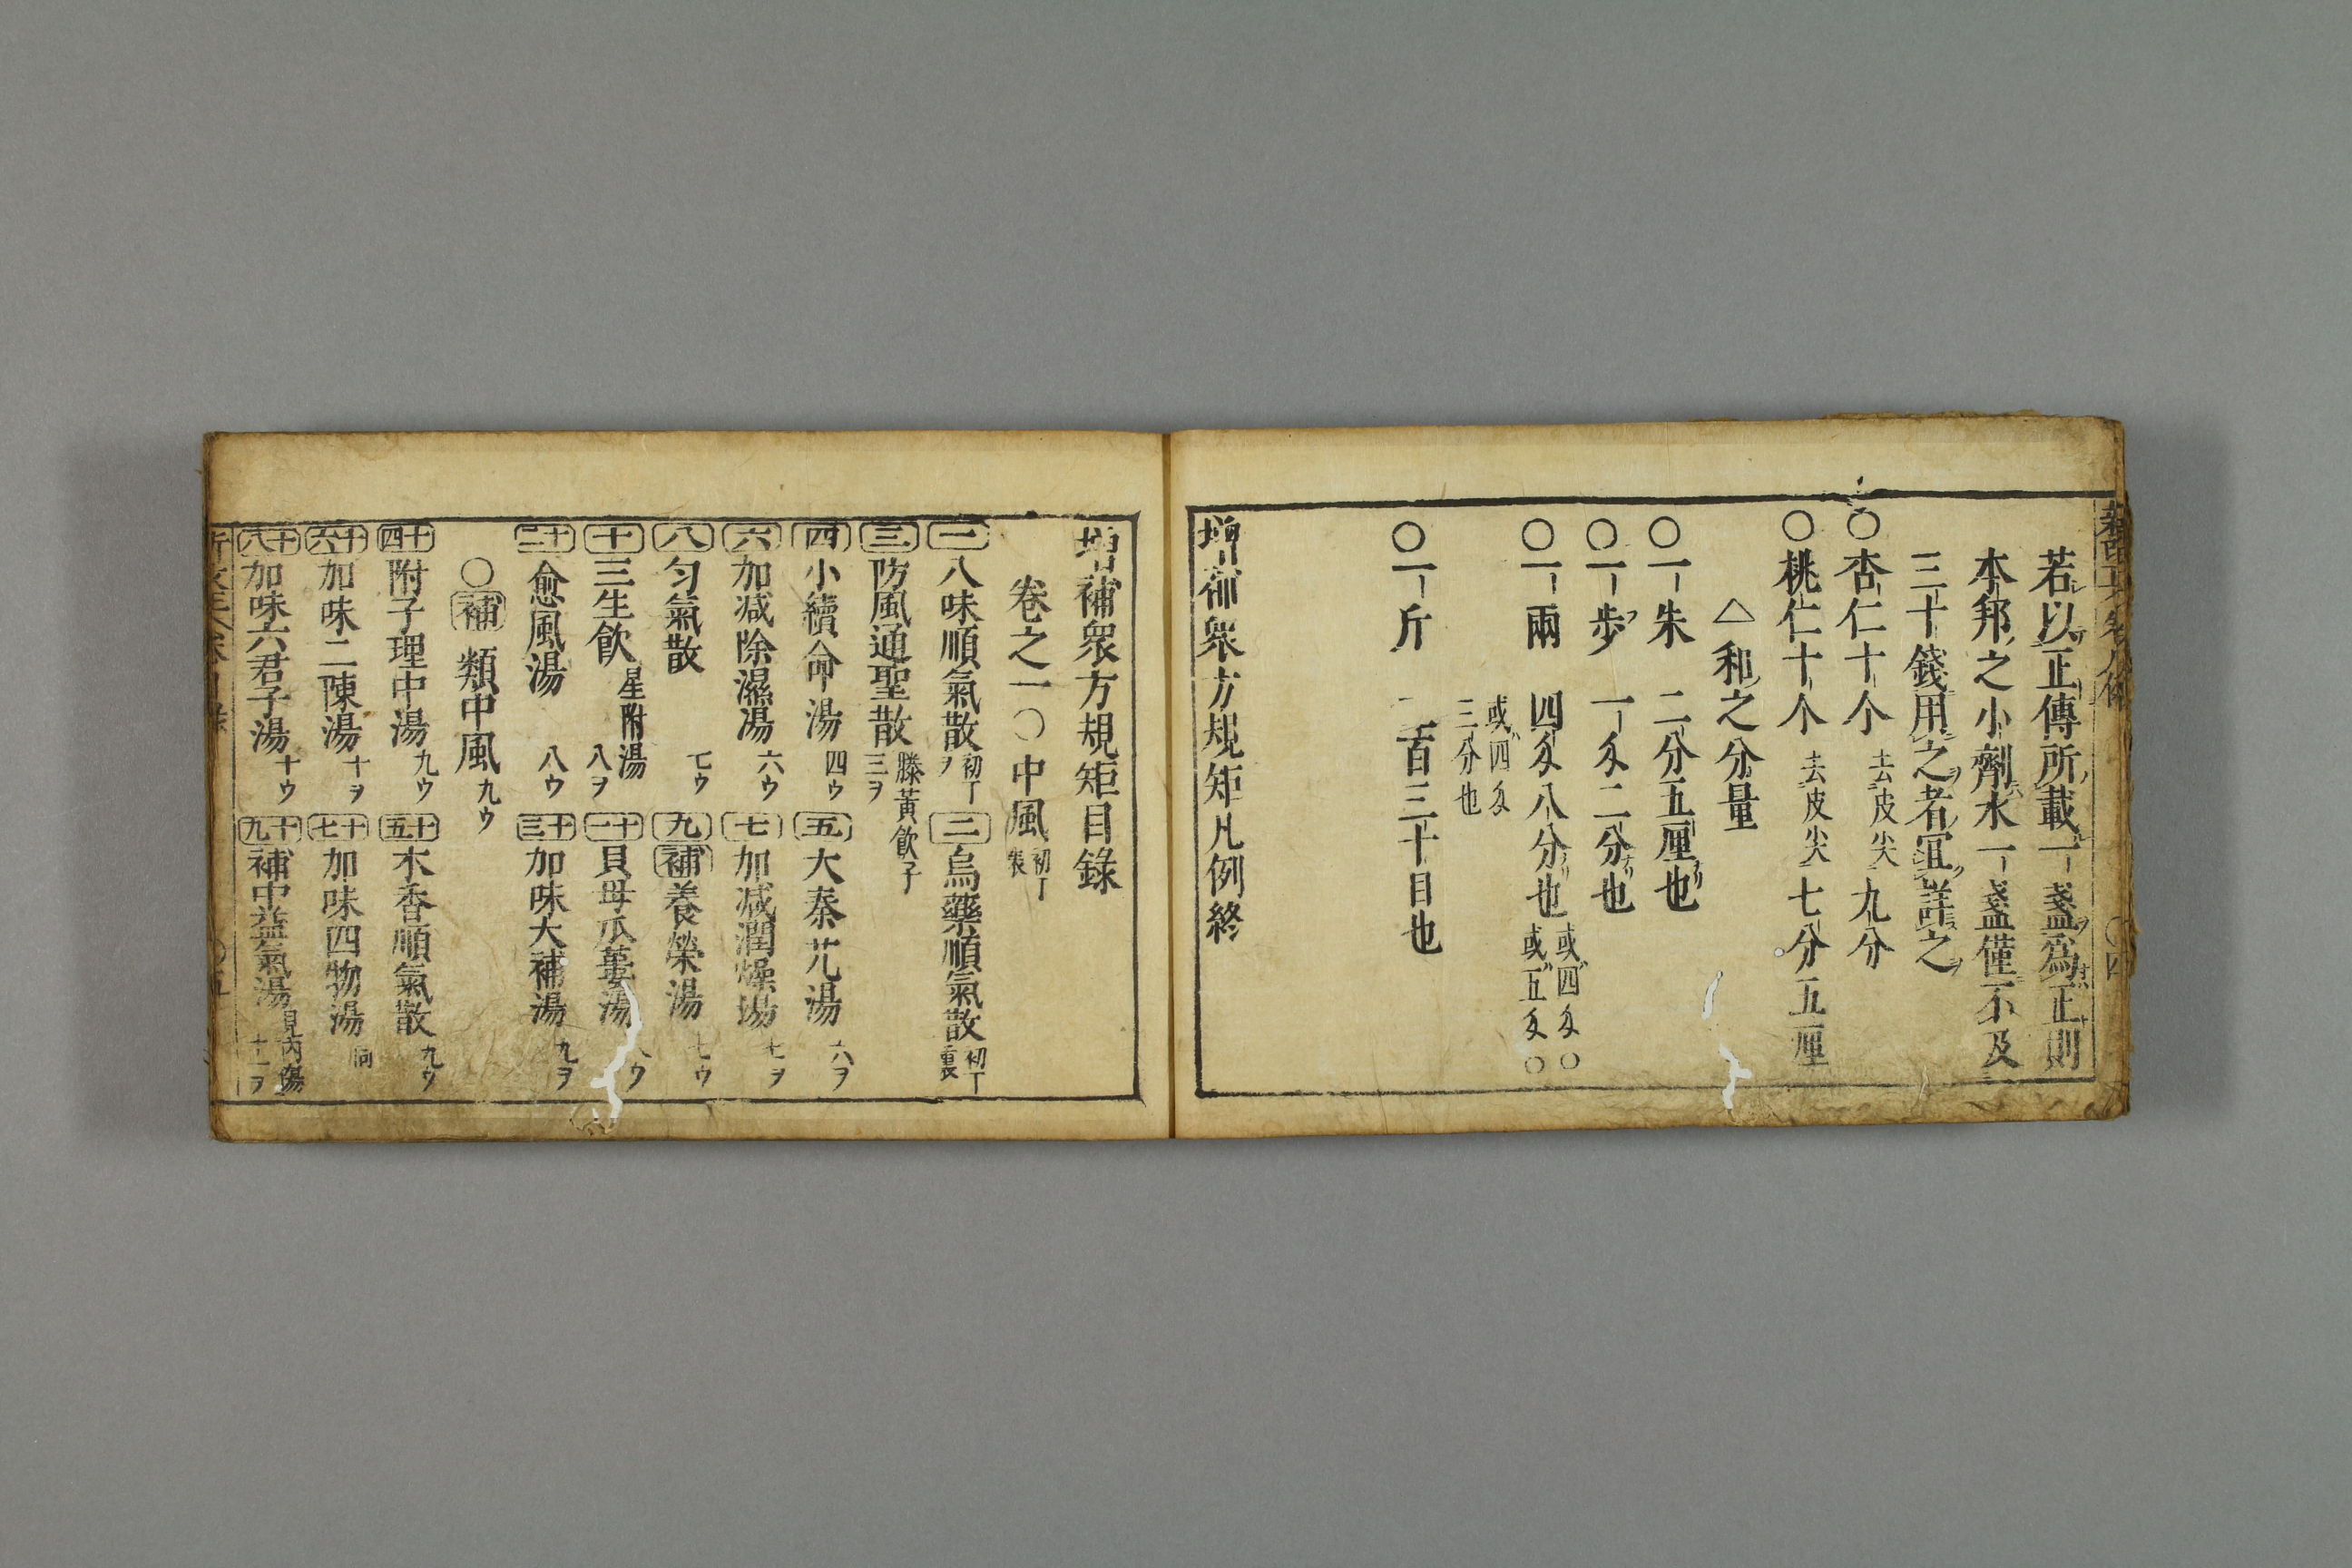 若以正傳所載一盞爲正則
本邦之小劑水一盞僅不及
三十錢用之者冝詳之
○杏仁十个 去皮尖 九分
○桃仁十个 去皮尖 七分五厘
△和之分量
○一朱 二分五厘也
○一歩 一匁二分也
○一兩 四匁八分也 或四匁○
或五匁○
或四匁
三分也
○一斤 二百三十目也
增補衆方規矩凡例終
增補衆方規矩目錄
卷之一○中風 初丁
裴
一 八味順氣散 初丁
ヲ
二 烏藥順氣散 初丁
裏
三 防風通聖散 滕黃飮子
三ヲ
四 小續命湯 四ウ
五 大秦艽湯 六ヲ
六 加减除濕湯 六ウ
七 加减潤燥湯 七ヲ
八 匀氣散 七ウ
九 補養榮湯 七ウ
十 三生飮 星附湯
八ヲ
十一 貝母瓜蔞湯 ウ
十二 愈風湯 八ウ
十三 加味大補湯 九ヲ
○補 類中風 九ウ
十四 附子理中湯 九ウ
十五 木香順氣散 九ウ
十六 加味二陳湯 十ヲ
十七 加味四物湯 同
十八 加味六君子湯 十ウ
十九 補中益氣湯 見内傷
十一ヲ